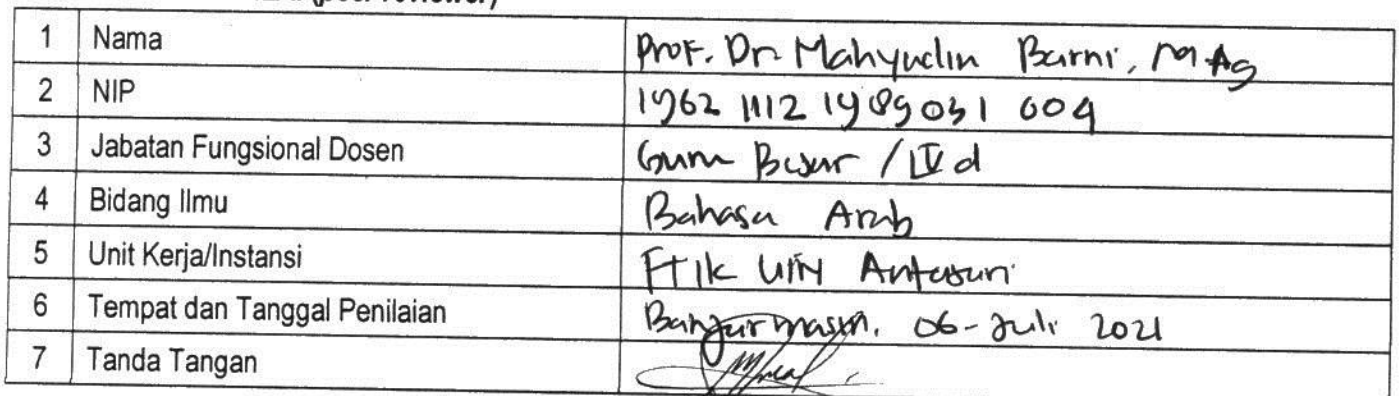 (peer reviewer)
1 Nama Prof. Dr. Mahyudin Barni, M.Ag
2 NIP 1962 1112 198903 1 004
3 Jabatan Fungsional Dosen Guru Besar / IV d
4 Bidang Ilmu Bahasa Arab
5 Unit Kerja/Instansi FTIK UIN Antasari
6 Tempat dan Tanggal Penilaian Banjarmasin, 06-Juli 2021
7 Tanda Tangan